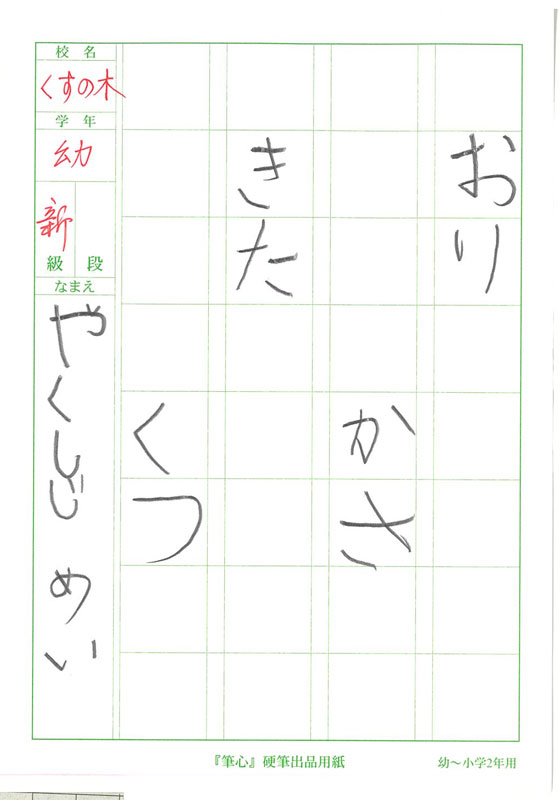 おり
かさ
きた
くつ
校名
くすの木
学年
幼
新
級 段
なまえ
やくしじ めい
『筆心』硬筆出品用紙
幼～小学2年用